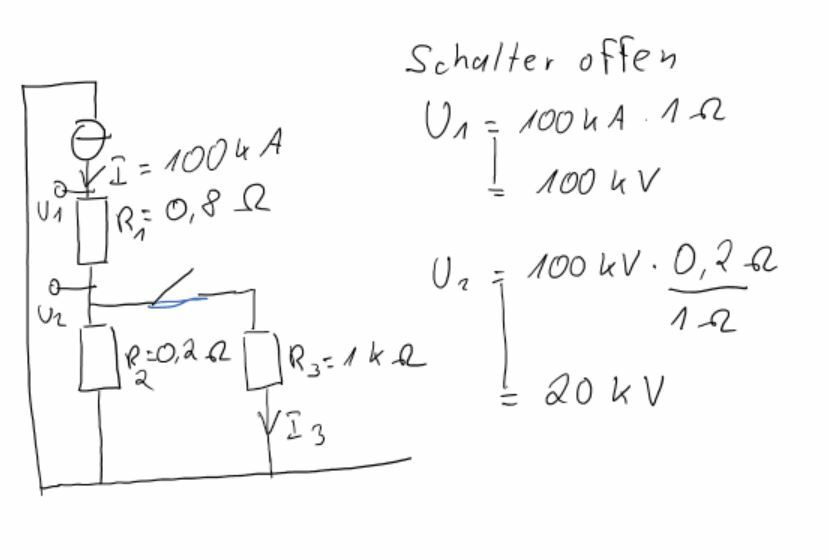 Schalter offen
U1 = 100kA . 1 Ω
= 100 kV
U2 = 100 kV . 0,2 Ω
1 Ω
= 20 kV
I = 100kA
U1
R1 = 0,8 Ω
U2
R2 = 0,2 Ω
R3 = 1 k Ω
I3